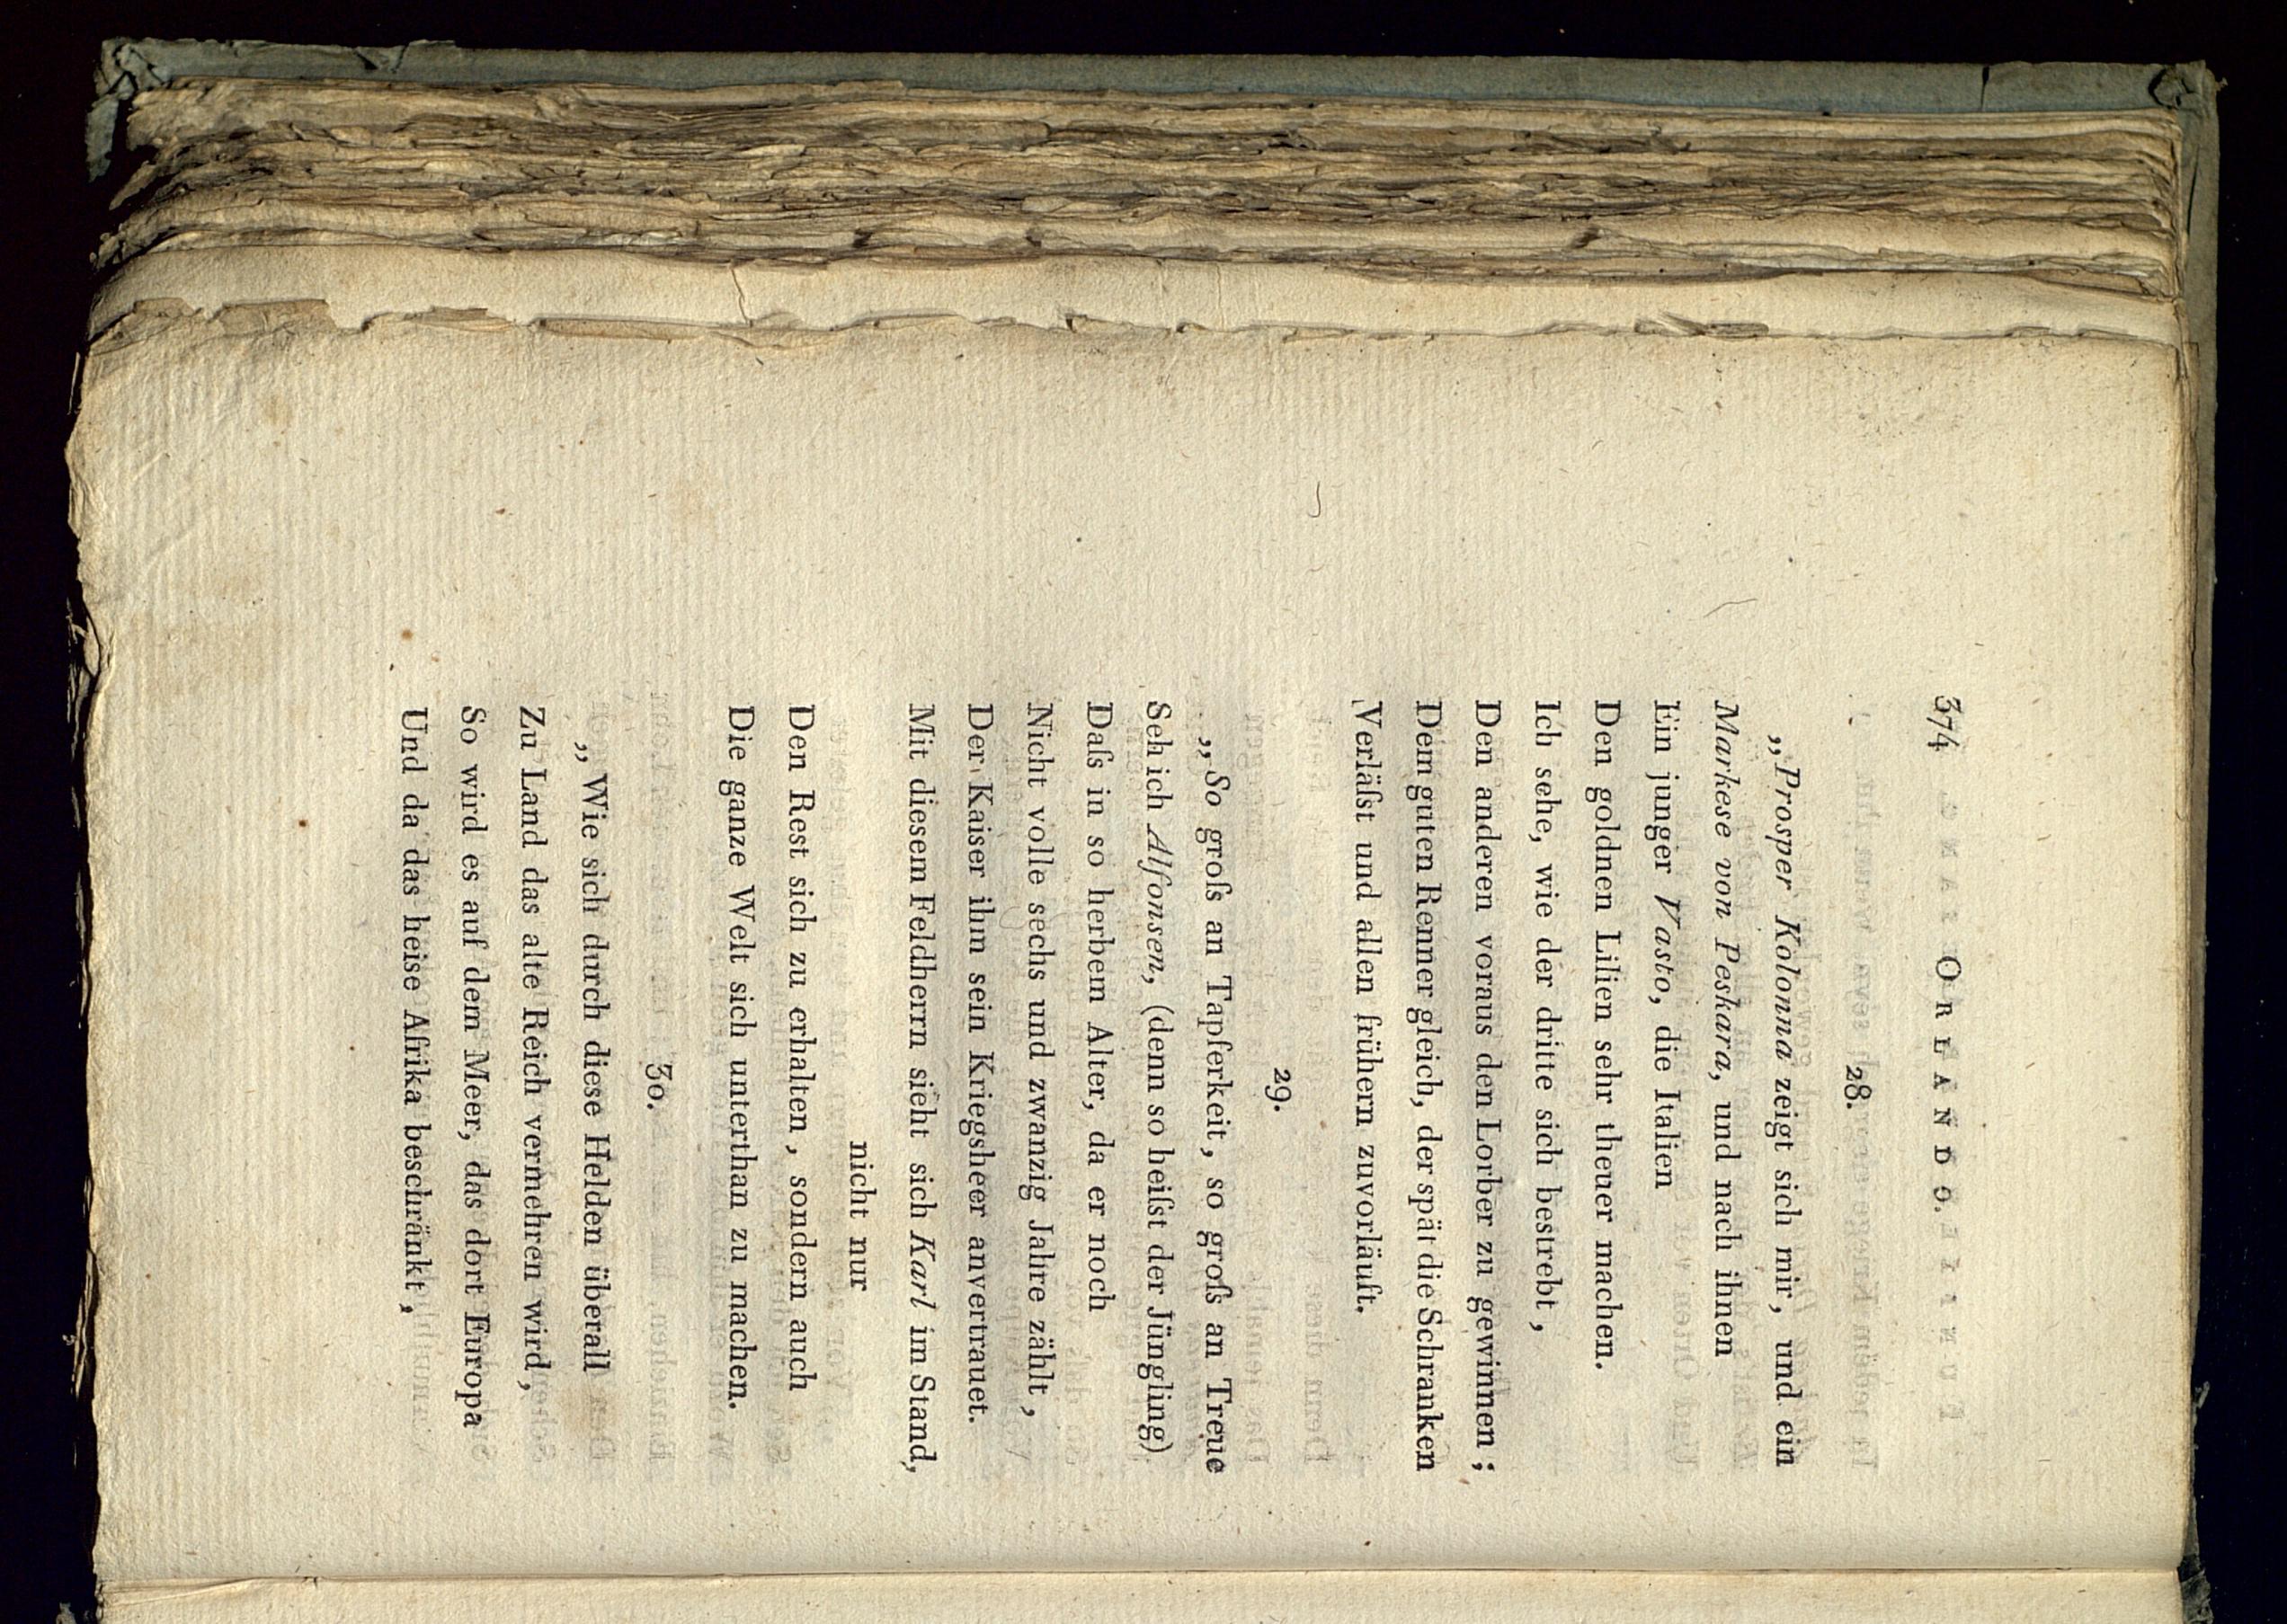 374 ORLANDO.
28.
„Prosper Kolonna zeigt sich mir, und ein
Markese von Peskara, und nach ihnen
Ein junger Vasto, die Italien
Den goldnen Lilien sehr theuer machen.
Ich sehe, wie der dritte sich bestrebt,
Den anderen voraus den Lorber zu gewinnen;
Dem guten Renner gleich, der spät die Schranken
Verläſst und allen frühern zuvorläuft.
29.
„So groſs an Tapferkeit, so groſs an Treue
Seh ich Alfonsen, (denn so heiſst der Jüngling)
Daſs in so herbem Alter, da er noch
Nicht volle sechs und zwanzig Jahre zählt,
Der Kaiser ihm sein Kriegsheer anvertrauet.
Mit diesem Feldherrn sieht sich Karl im Stand,
nicht nur
Den Rest sich zu erhalten, sondern auch
Die ganze Welt sich unterthan zu machen.
30.
„Wie sich durch diese Helden überall
Zu Land das alte Reich vermehren wird,
So wird es auf dem Meer, das dort Europa
Und da das heise Afrika beschränkt,